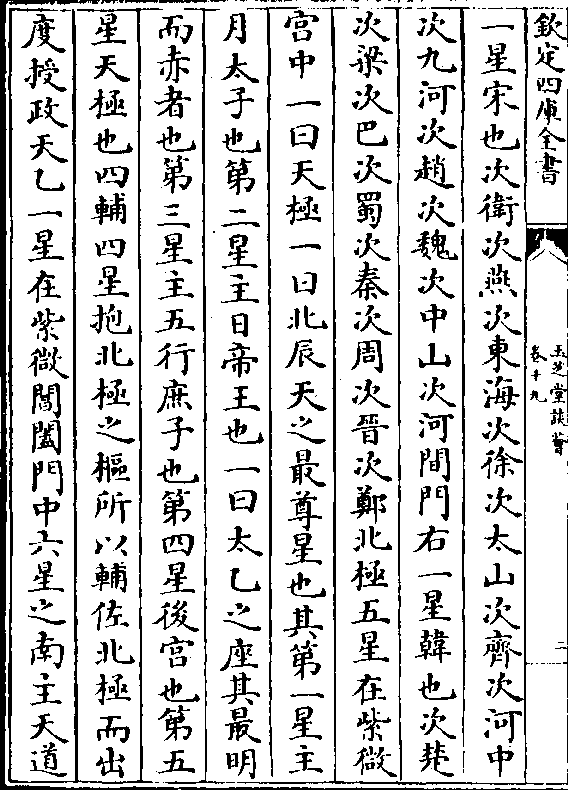 欽定四庫全書
玉芝堂談薈
卷十九
二
一星宋也次衛次燕次東海次徐次太山次齊次河中
次九河次趙次魏次中山次河間門右一星韓也次楚
次梁次巴次蜀次秦次周次晉次鄭北極五星在紫微
宫中一曰天極一曰北辰天之最尊星也其第一星主
月太子也第二星主日帝王也一曰太乙之座其最明
而赤者也第三星主五行庶子也第四星後宫也第五
星天極也四輔四星抱北極之樞所以輔佐北極而出
度授政天乙一星在紫微閶闔門中六星之南主天道